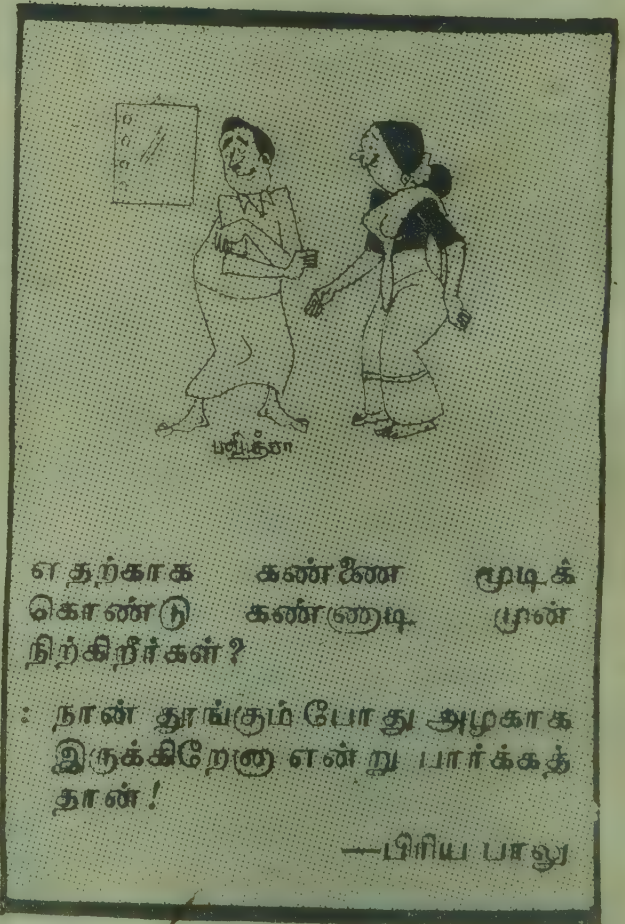 பவித்ரா
எதற்காக கண்ணை மூடிக்
கொண்டு கண்ணாடி முன்
நிற்கிறீர்கள்?
: நான் தூங்கும் போது அழகாக
இருக்கிறேனா என்று பார்க்கத்
தான்!
—பிரிய பாலு